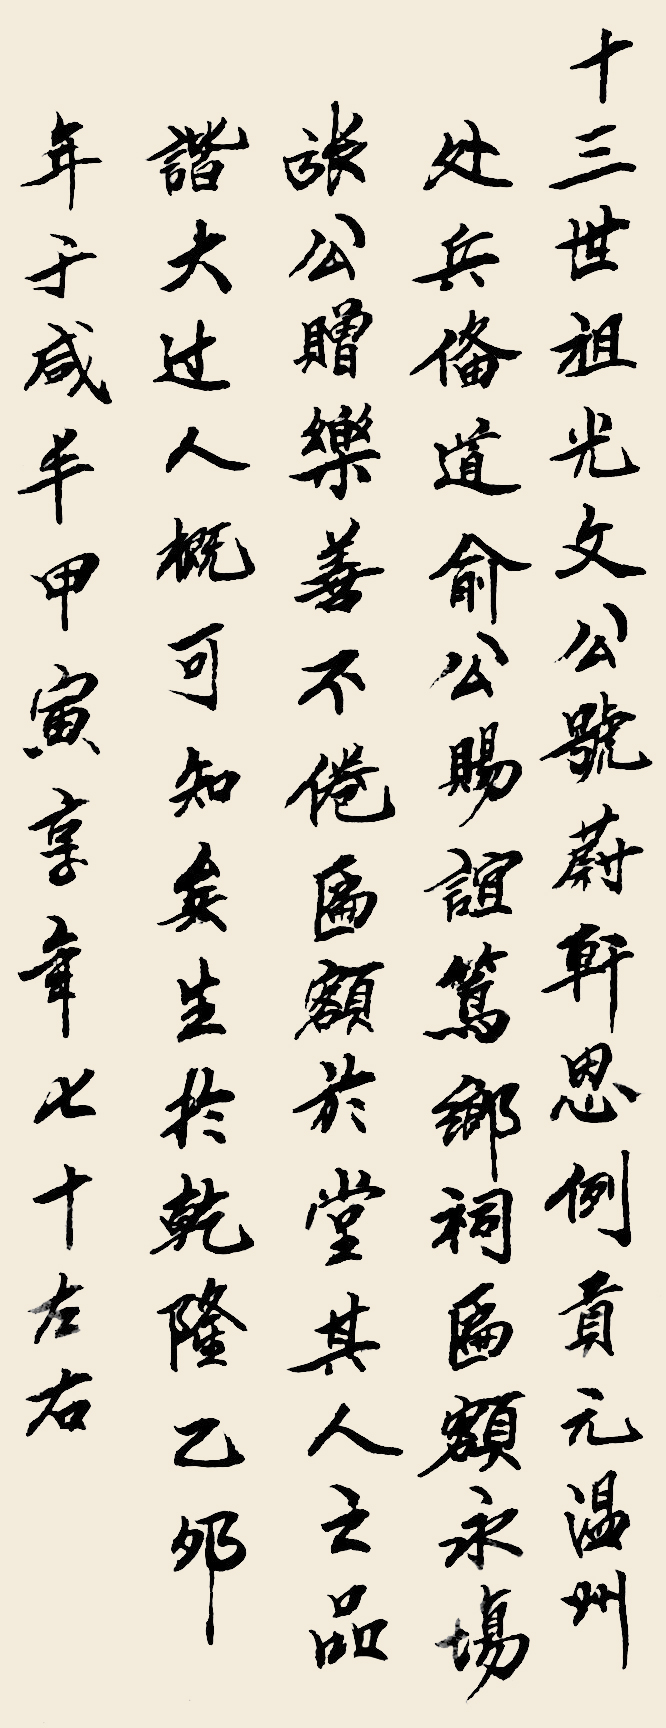 十三世祖光文公號蔚軒恩例貢元温州
处兵俻道俞公賜誼篤鄉祠匾額永塲
張公贈樂善不倦匾額於堂其人之品
諧大过人概可知矣生於乾隆乙邜
年于咸丰甲寅享年七十左右